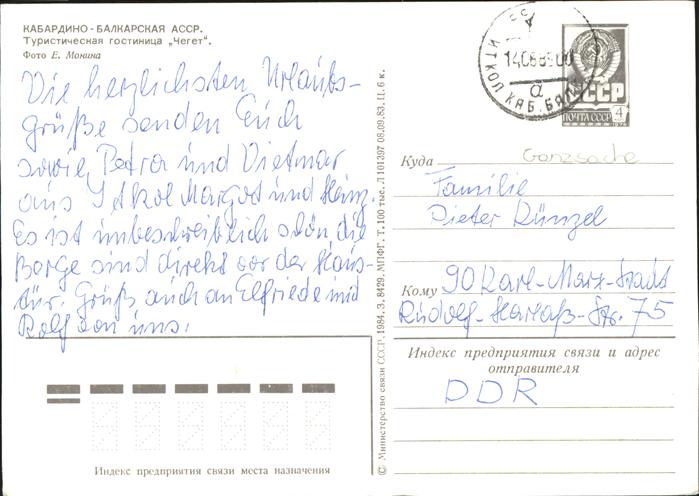 КАБАРДИНО-БАЛКАРСКАЯ АССР.
Туристическая гостиница „Чегет".
Фото Е. Монина
Die herzlichsten Urlaubs-
grüße senden Euch
sowie Petra und Dietmar
aus Itkol Margot und Heinz.
Es ist unbeschreiblich schön, die
Berge sind direkt vor der Haus-
tür. Grüßt auch an Elfriede und
Rolf von uns.
Индекс предприятия связи места назначения
© Министерство связи СССР. 1984. З. 8429. МПФГ. Т. 100 тыс. Л 101397 08.09.83. Ц. 6 к.
ИТКОЛ КАБ. БАЛК.
а
СССР
ПОЧТА СССР 4
Куда
Ganzsache
Familie
Dieter Künzel
Кому 90 Karl-Marx-Stadt
Rudolf-Harlaß-Str. 75
Индекс предприятия связи и адрес
отправителя
DDR